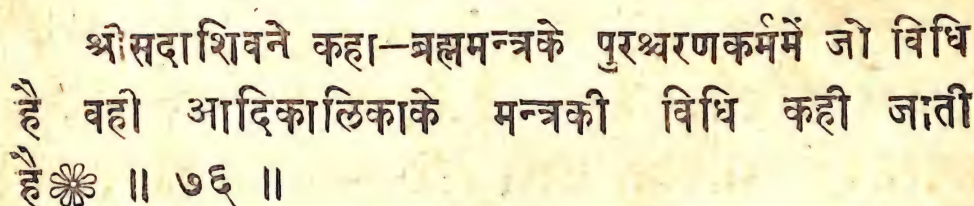 श्रीसदाशिवने कहा—ब्रह्ममन्त्रके पुरश्चरणकर्ममें जो विधि
है वही आदिकालिकाके मन्त्रकी विधि कही जाती
है❋ ॥ ७६ ॥